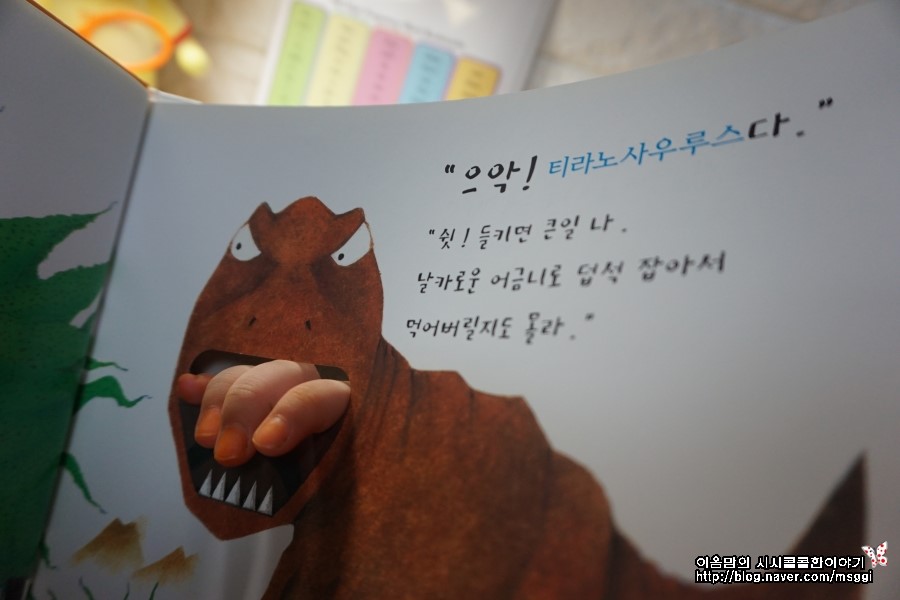 "으악! 티라노사우루스다."
"쉿! 들키면 큰일 나.
날카로운 어금니로 덥석 잡아서
먹어버릴지도 몰라."
이옴맘의 시시콜콜한이야기
http://blog.naver.com/msggi